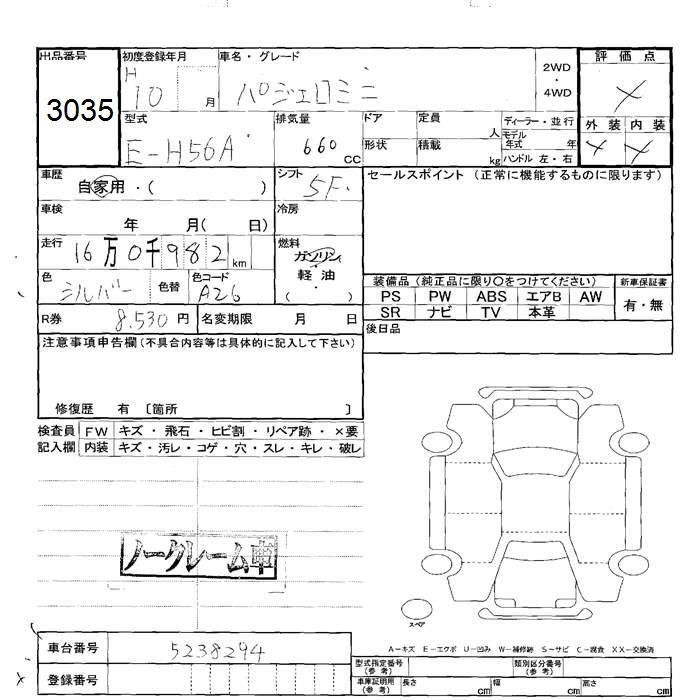 出品番号 初度登録年月 車名・グレード 評価点
3035 H 10 月 パジェロミニ 2WD・4WD ×
型式 排気量 ドア 定員 人 ディーラー・並行 外装 内装
E-H56A 660 CC 形状 積載 kg モデル年式 年 × ×
ハンドル 左・右
車歴 自家用・( ) シフト 5F. セールスポイント (正常に機能するものに限ります)
車検 年 月( 日) 冷房
走行 16万0千982km 燃料 ガソリン
軽・油
( )
色 シルバー 色替 色コード A26
装備品 (純正品に限り〇をつけてください) 新車保証書
PS PW ABS エアB AW 有・無
SR ナビ TV 本革
R券 8.530 円 名変期限 月 日
後日品
注意事項申告欄 (不具合内容等は具体的に記入して下さい)
修復歴 有 〔箇所 〕
検査員 FW キズ・飛石・ヒビ割・リペア跡・×要
記入欄 内装 キズ・汚レ・コゲ・穴・スレ・キレ・破レ
ノークレーム車
スペア
A-キズ E-エクボ U-凹み W-補修跡 S-サビ C-腐食 XX-交換済
車台番号 5238294
登録番号
型式指定番号 (参考) 類別区分番号 (参考)
車庫証明用 (参考) 長さ cm 幅 cm 高さ cm